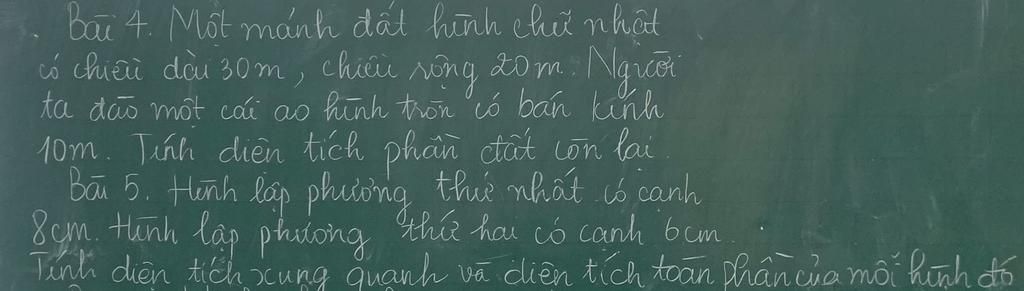 Bài 4. Một mảnh đất hình chữ nhật
có chiều dài 30m, chiều rộng 20m. Người
ta đào một cái ao hình tròn có bán kính
10m. Tính diện tích phần đất còn lại.
Bài 5. Hình lập phương thứ nhất có cạnh
8cm. Hình lập phương thứ hai có cạnh 6cm.
Tính diện tích xung quanh và diện tích toàn phần của mỗi hình đó